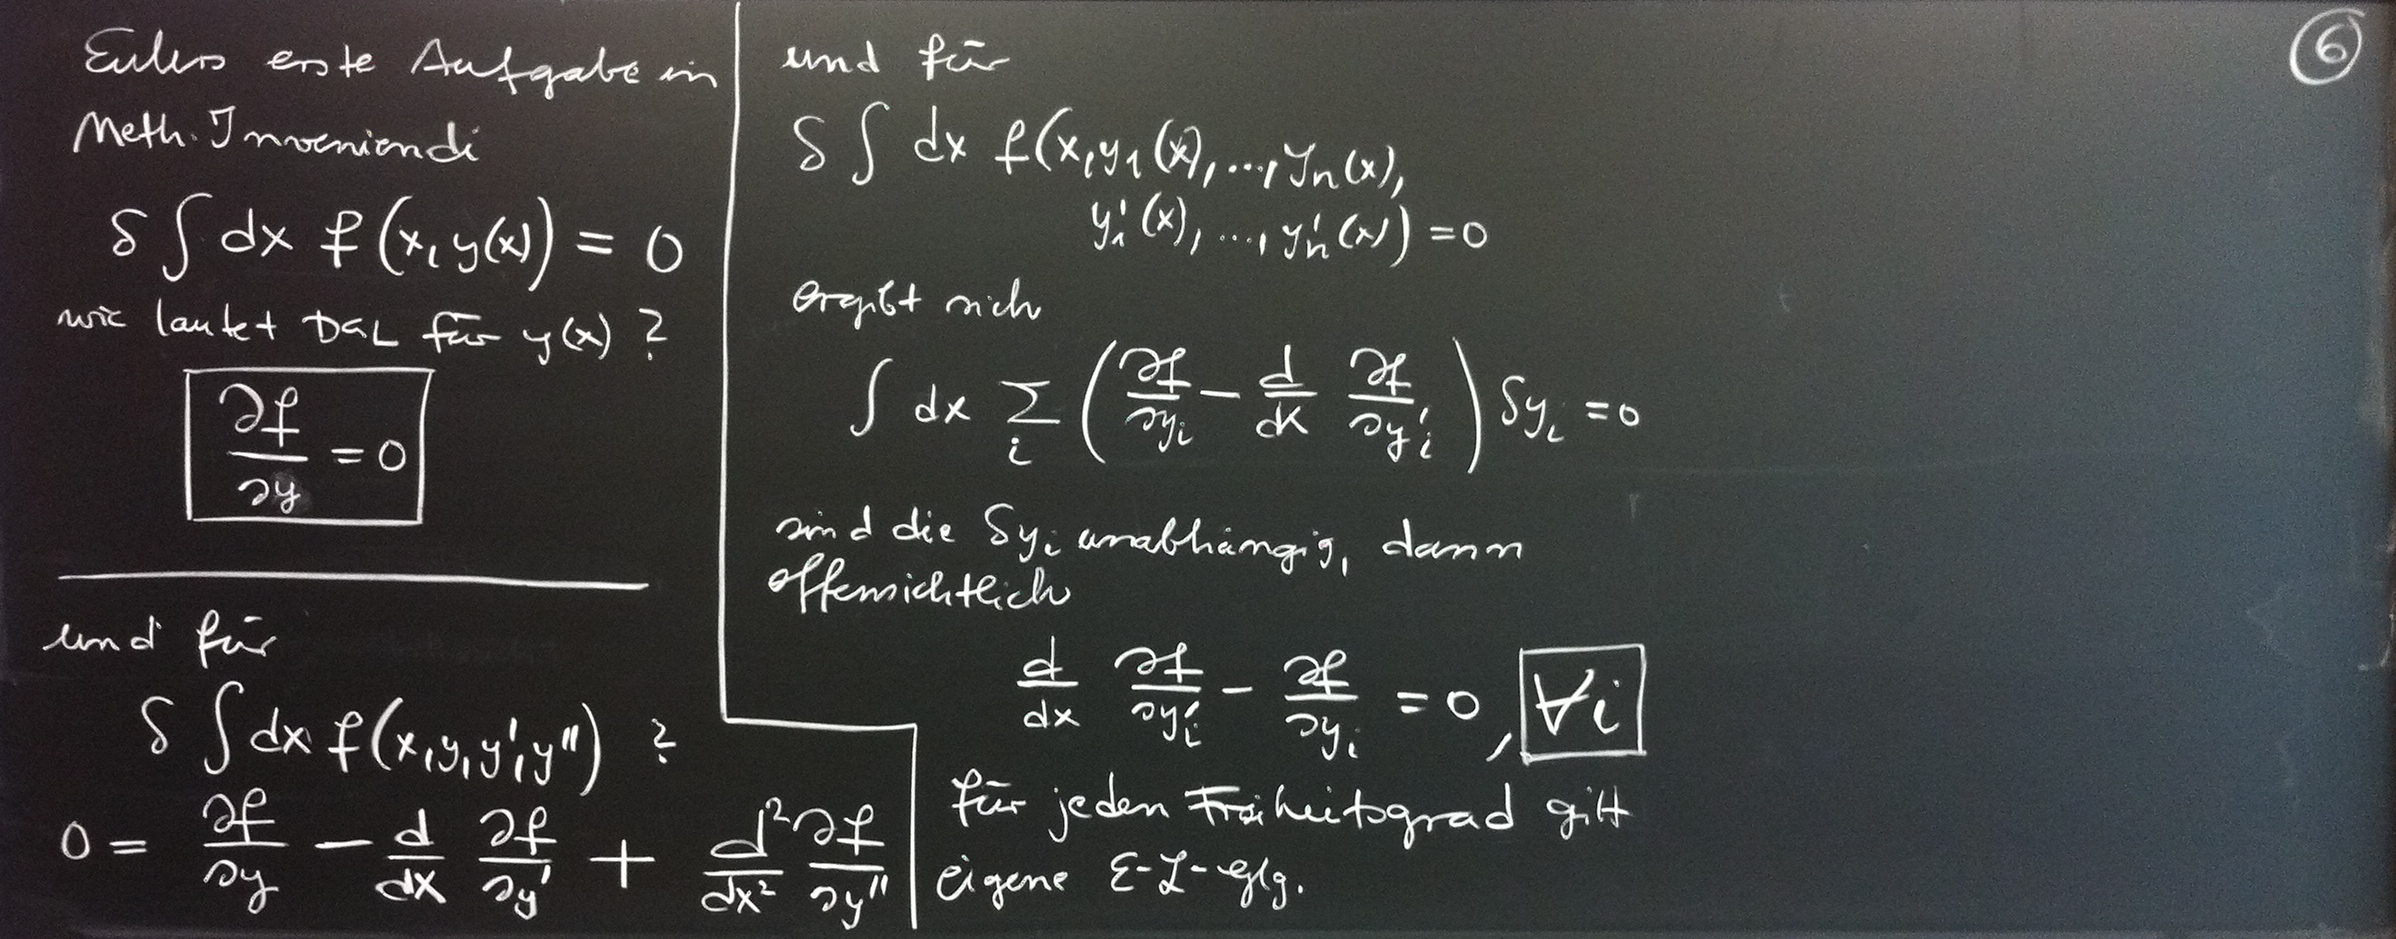 Eulers erste Aufgabe in
Meth. Inveniendi
δ ∫ dx f(x, y(x)) = 0
wie lautet DGL für y(x) ?
∂f/∂y = 0
und für
δ ∫ dx f(x, y, y', y'') ?
0 = ∂f/∂y − d/dx ∂f/∂y' + d²/dx² ∂f/∂y''
und für
δ ∫ dx f(x, y₁(x), ..., yₙ(x),
y₁'(x), ..., yₙ'(x)) = 0
ergibt sich
∫ dx Σᵢ (∂f/∂yᵢ − d/dx ∂f/∂yᵢ') δyᵢ = 0
sind die δyᵢ unabhängig, dann
offensichtlich
d/dx ∂f/∂yᵢ' − ∂f/∂yᵢ = 0, ∀i
für jeden Freiheitsgrad gilt
eigene E-L-Glg.
6